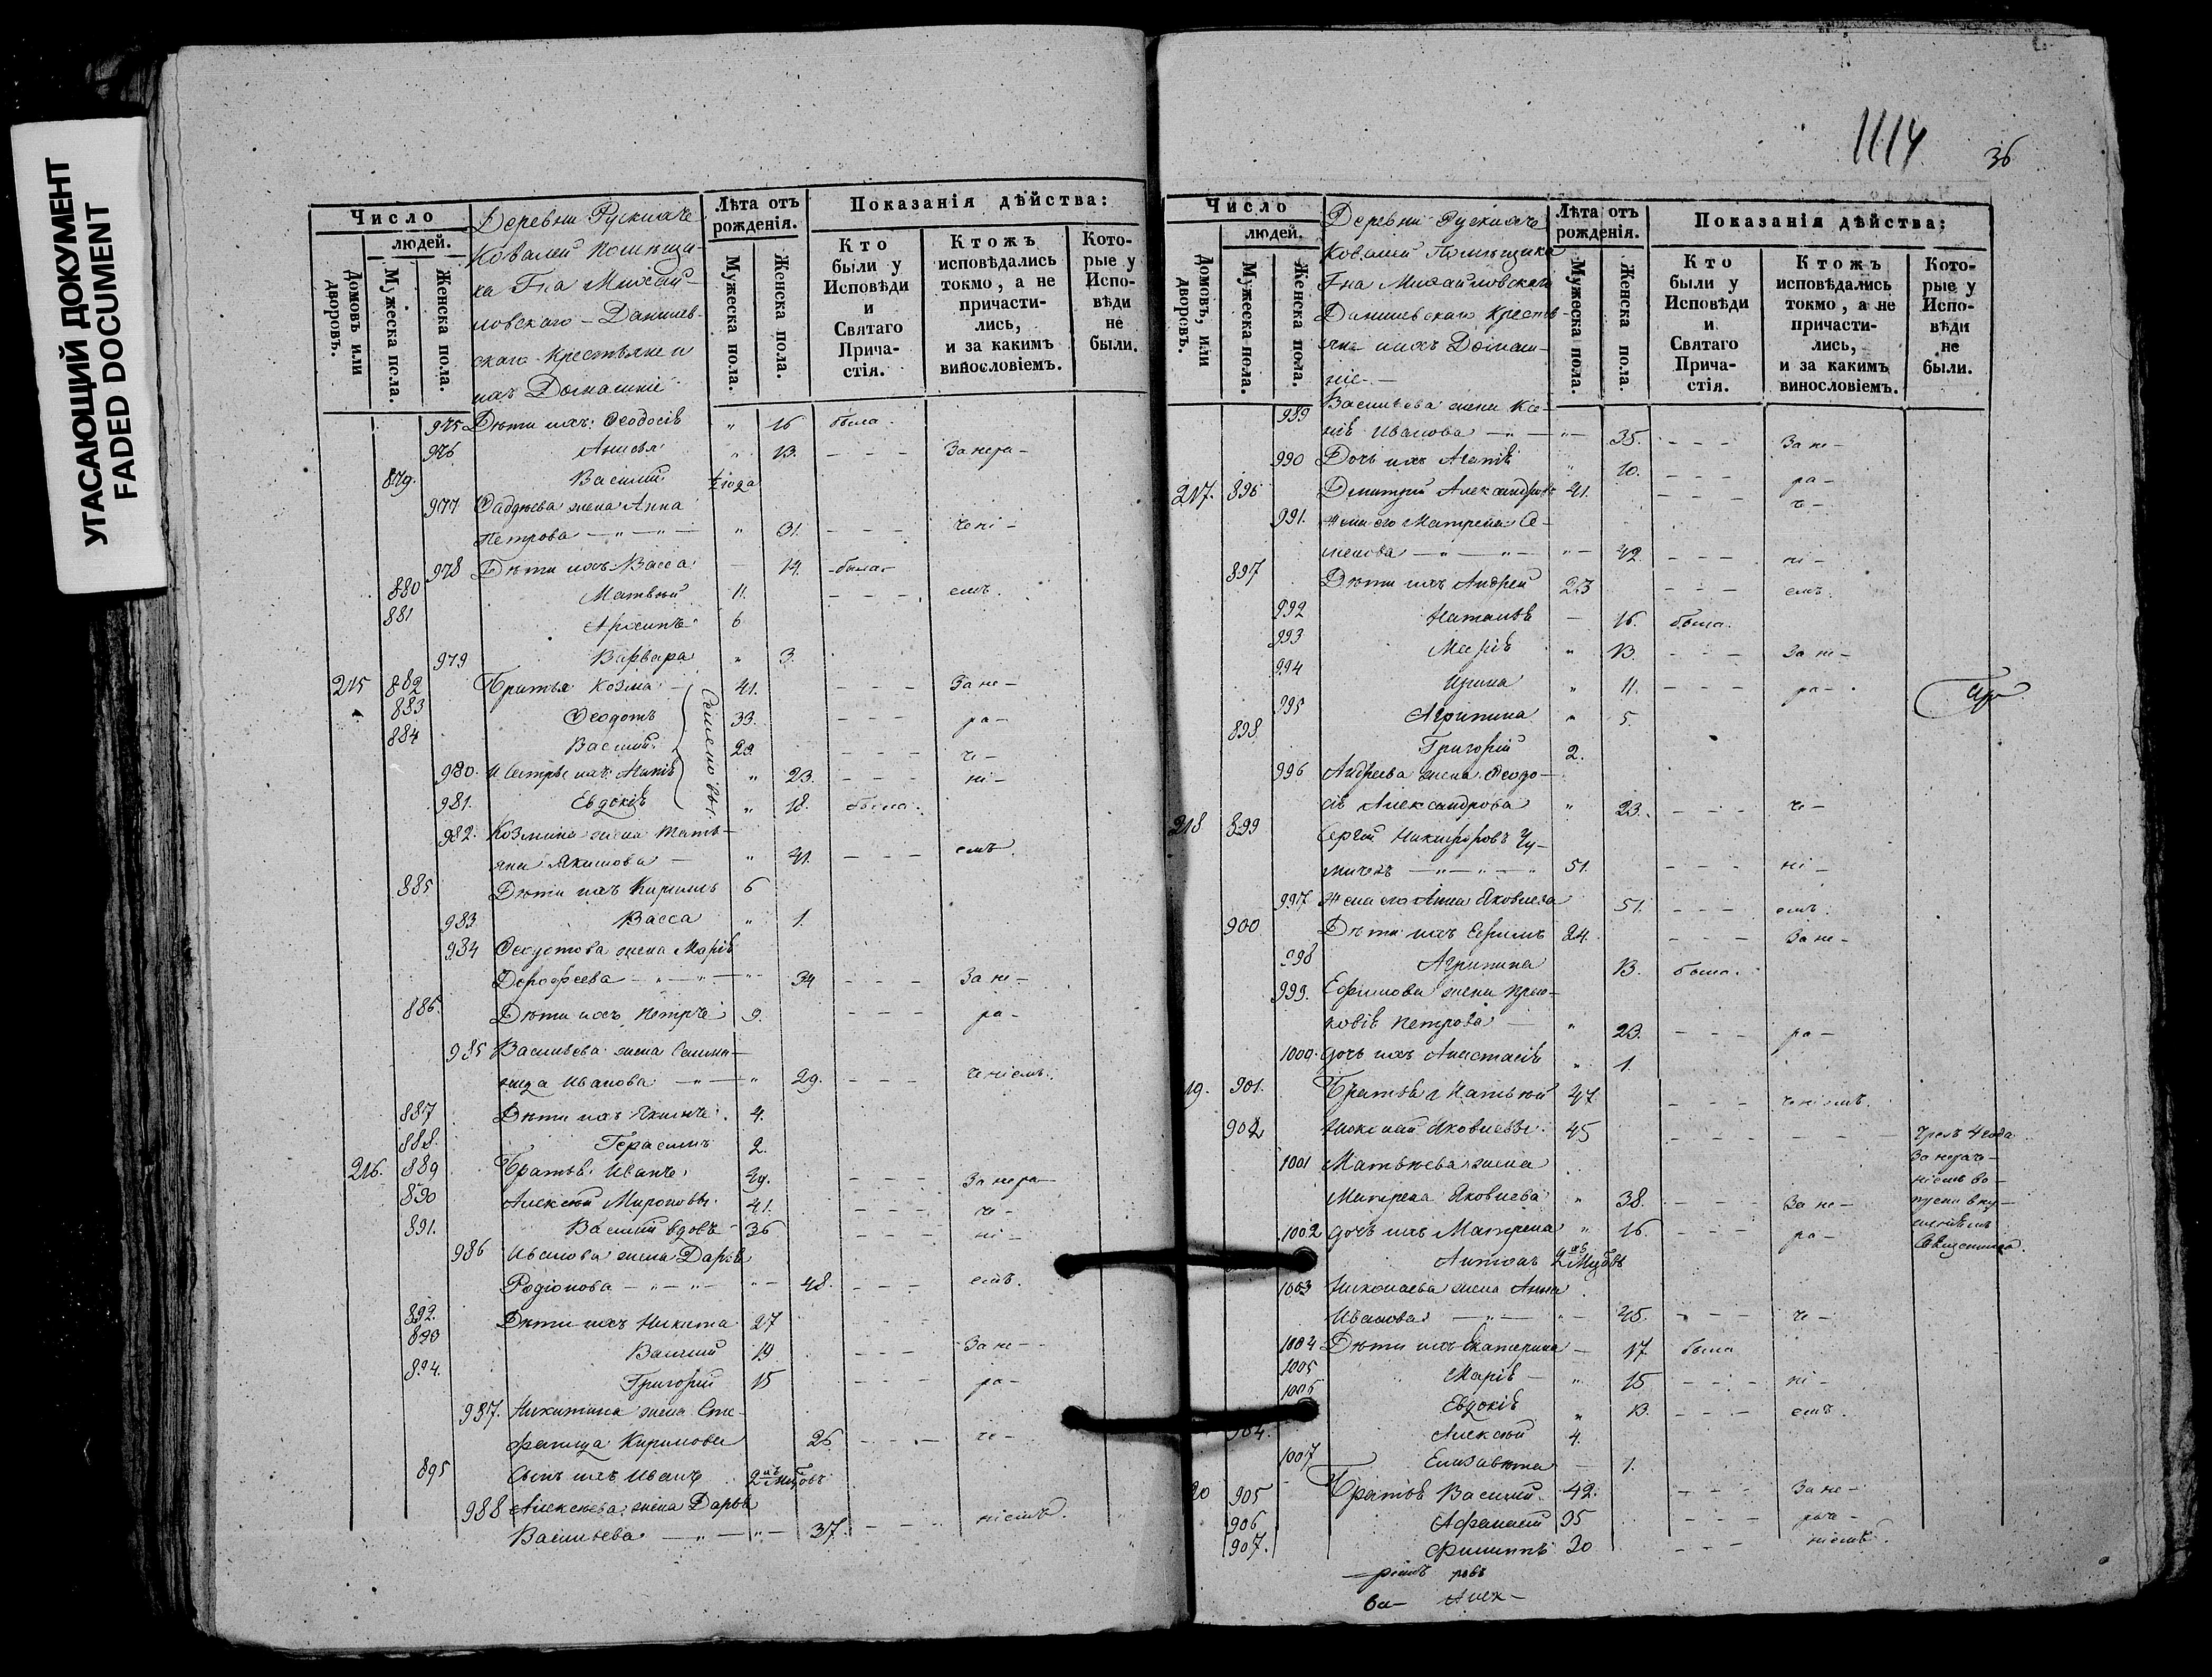 УГАСАЮЩИЙ ДОКУМЕНТ
FADED DOCUMENT
Число
людей.
Домовъ или дворовъ.
Мужеска пола.
Женска пола.
Деревни Рускихъ
Ковалей помѣщи-
ка Г-на Михай-
ловскаго-Данилев-
скаго крестьяне и
ихъ Домашніе
Лѣта отъ рожденія.
Мужеска пола.
Женска пола.
Показанія дѣйства:
Кто были у Исповѣди и Святаго Прича-стія.
Ктожъ исповѣдались токмо, а не причасти-лись, и за какимъ винословіемъ.
Кото-рые у Испо-вѣди не были.
975 Дѣти ихъ: Ѳеодосія " 16 была
976 Анисья " 13. - - - За нера-
879. Василій ½ года
977 Фаддѣева жена Анна
Петрова " 31. - - - чені-
978 Дѣти ихъ Васса 14. была
880 Матвѣй 11. - - - емъ.
881 Архипъ 6
979 Варвара " 3.
215 882 Братья Козма 41. - - - За не-
883 Ѳеодотъ 33. - - - ра-
884 Василій 29. - - - че-
Семеновы
980. И Сестры ихъ: Агапія " 23. - - - ні-
981. Евдокія " 18. была.
982. Козмина жена Татья-
на Якимова " 41. - - - емъ.
885 Дѣти ихъ Кириллъ 6
983 Васса " 1.
984 Ѳеодотова жена Марія
Дорофеева " 34 - - - За не-
886. Дѣти ихъ Петръ 9. - - - ра-
985 Васильева жена Соломо-
нида Иванова " 29. - - - ченіемъ.
887 Дѣти ихъ Якимъ 4.
888. Герасимъ 2.
216. 889 Братья Иванъ 49. За нера-
890 Алексѣй Мироновы. 41. - - - че-
891. Василій вдовъ 36 - - - ні-
986 Иванова жена Дарья
Родіонова " 48. - - - емъ.
892. Дѣти ихъ Никита 27
893 Василій 19 - - - За не-
894. Григорій 15 - - - ра-
987. Никитина жена Сте-
фанида Кирилова 26 - - - че-
895 Сынъ ихъ Иванъ 2
988 Алексѣева жена Дарья
Васильева " 37. - - - ніемъ.
1114
36
Число
людей.
Домовъ, или дворовъ.
Мужеска пола.
Женска пола.
Деревни Рускихъ
Ковалей Помѣщика
Г-на Михайловскаго
Данилевскаго Кресть-
яне и ихъ Домаш-
ніе.
Лѣта отъ рожденія.
Мужеска пола.
Женска пола.
Показанія дѣйства:
Кто были у Исповѣди и Святаго Прича-стія.
Ктожъ исповѣдались токмо, а не причасти-лись, и за какимъ винословіемъ.
Кото-рые у Испо-вѣди не были.
989 Васильева жена Ксе-
нія Иванова " 35. - - - За не-
990 Дочь ихъ Агапія " 10. - - - ра-
217. 896 Дмитрій Александровъ 41. - - - че-
991. Жена его Матрена Се-
менова " 42. - - - ні-
897 Дѣти ихъ Андрей 23 - - - емъ.
992 Наталья 16. была.
993 Марія " 13. - - - За не-
994 Ирина " 11. - - - ра-
995 Агрипина " 5.
898 Григорій 2.
996 Андреева жена Ѳеодо-
сія Александрова " 23. - - - че-
218 899 Сергій Никифоровъ
51. - - - ні-
997 Жена его Анна Яковлева 51. - - - емъ.
900 Дѣти ихъ Ефимъ 24. - - - За не-
998 Агрипина 13. была.
999. Ефимова жена Прас-
ковія Петрова " 23. - - - ра-
1000. дочь ихъ Анастасія " 1.
19. 901. Братья Матвѣй 47. - - - ченіемъ.
902 Николай Яковлевы. 45 - - -
1001 Матвѣева жена
Матрена Яковлева " 38. - - - За не-
1002 дочь ихъ Матрена " 16. - - - ра-
Антонъ 2
1003 Николаева жена Анна
Иванова " 45. - - - че-
1004 Дѣти ихъ Екатерина 17 была
1005 Марія " 15 - - - ні-
1006 Евдокія " 13. - - - емъ.
904. Алексѣй 4.
1007 Елизавета 1.
20 905 Братья Василій 42. - - - За не-
906 Афанасій 35 - - - раче-
907. Филиппъ 30 - - - ніемъ.
Алек-